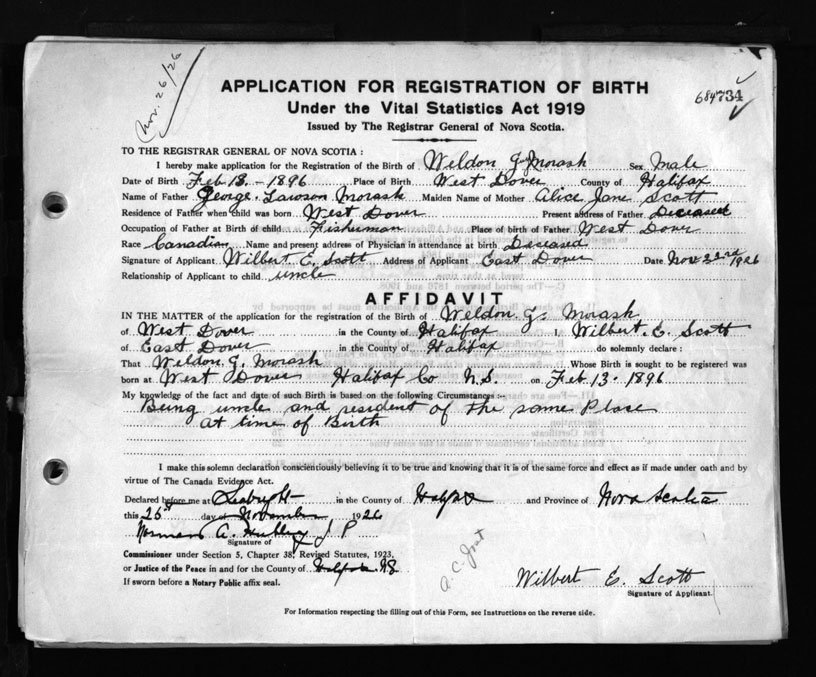 Nov. 26/26
APPLICATION FOR REGISTRATION OF BIRTH
Under the Vital Statistics Act 1919
684734
Issued by The Registrar General of Nova Scotia.
TO THE REGISTRAR GENERAL OF NOVA SCOTIA :
I hereby make application for the Registration of the Birth of Weldon G. Morash Sex Male
Date of Birth Feb 13.-1896 Place of Birth West Dover County of Halifax
Name of Father George. Lawson Morash Maiden Name of Mother Alice Jane Scott
Residence of Father when child was born West Dover Present address of Father Deceased
Occupation of Father at Birth of child Fisherman Place of birth of Father West Dover
Race Canadian Name and present address of Physician in attendance at birth Deceased
Signature of Applicant Wilbert E. Scott Address of Applicant East Dover Date Nov 22nd 1926
Relationship of Applicant to child uncle
AFFIDAVIT
IN THE MATTER of the application for the registration of Birth of Weldon. G. Morash
of West Dover in the County of Halifax I, Wilbert. E. Scott
of East Dover in the County of Halifax do solemnly declare :
That Weldon. G. Morash Whose Birth is sought to be registered was
born at West Dover Halifax Co N.S. on Feb 13. 1896
My knowledge of the fact and date of such Birth is based on the following Circumstances :-
Being uncle and resident of the same Place
at time of Birth
I make this solemn declaration conscientiously believing it to be true and knowing that it is of the same force and effect as if made under oath and by
virtue of The Canada Evidence Act.
Declared before me at Seabright in the County of Halifax and Province of Nova Scotia
this 25 day of November 1926
Norman A. Hubley J P
Signature of
Commissioner under Section 5, Chapter 38, Revised Statutes, 1923,
or Justice of the Peace in and for the County of Halifax NS
If sworn before a Notary Public affix seal.
Wilbert E. Scott
Signature of Applicant.
For Information respecting the filling out of this Form, see Instructions on the reverse side.